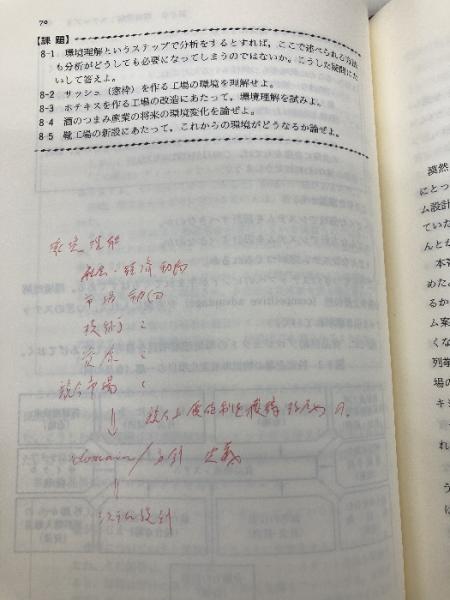 70
【課 題】
8-1 環境理解というステップで分析をするとすれば,ここで述べられる方法
も分析がどうしても必要になってしまうのではないか。こうした疑問にた
いして答えよ。
8-2 サッシュ(窓枠)を作る工場の環境を理解せよ。
8-3 ホチキスを作る工場の改造にあたって,環境理解を試みよ。
8-4 酒のつまみ産業の将来の環境変化を論ぜよ。
8-5 靴工場の新設にあたって,これからの環境がどうなるか論ぜよ。
環境理解
社会・経済動向
市場動向
技術 〃
競合市場 〃
競争上優位性を獲得
domain/方針 定義
システム設計
漠然
にとっ
ム設計
ていた
んとな
本
めた。
るか
ム案
くな
列挙
場の
キ
て
れ
う
は